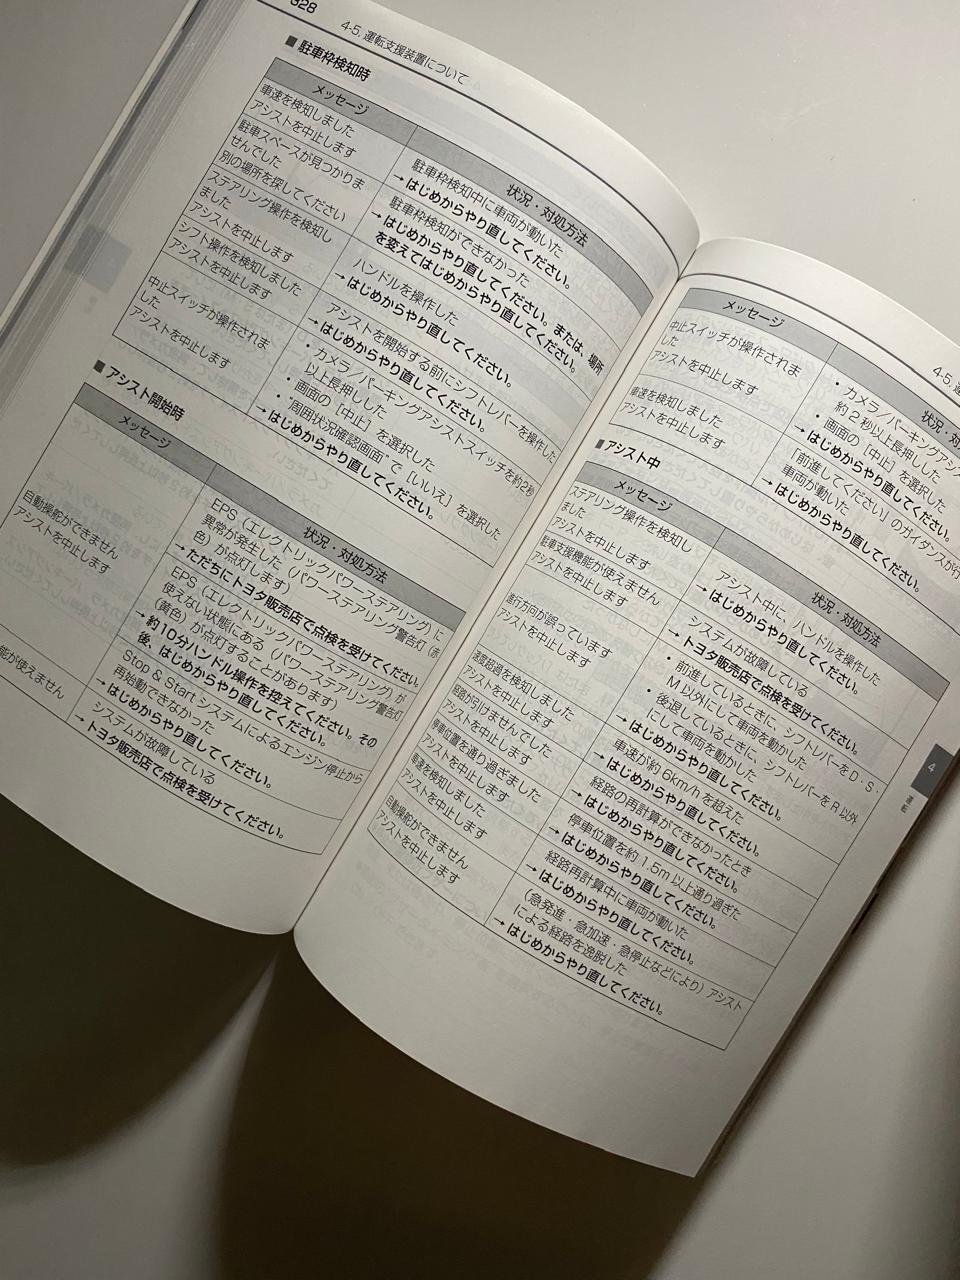 328
4-5. 運転支援装置について
■ 駐車枠検知時
メッセージ
状況・対処方法
車速を検知しました
アシストを中止します
駐車枠検知中に車両が動いた
→ はじめからやり直してください。
駐車スペースが見つかりま
せんでした
別の場所を探してください
駐車枠検知ができなかった
→ はじめからやり直してください。または、場所
を変えてはじめからやり直してください。
ステアリング操作を検知し
ました
アシストを中止します
ハンドルを操作した
→ はじめからやり直してください。
シフト操作を検知しました
アシストを中止します
アシストを開始する前にシフトレバーを操作した
→ はじめからやり直してください。
中止スイッチが操作されま
した
アシストを中止します
• カメラ／パーキングアシストスイッチを約2秒
以上長押しした
• 画面の［中止］を選択した
• “周囲状況確認画面”で［いいえ］を選択した
→ はじめからやり直してください。
■ アシスト開始時
メッセージ
状況・対処方法
自動操舵ができません
アシストを中止します
EPS（エレクトリックパワーステアリング）に
異常が発生した（パワーステアリング警告灯（赤
色）が点灯します）
→ ただちにトヨタ販売店で点検を受けてください。
EPS（エレクトリックパワーステアリング）が
使えない状態にある（パワーステアリング警告灯
（黄色）が点灯することがあります）
→ 約10分ハンドル操作を控えてください。その
後、はじめからやり直してください。
Stop & Start システムによるエンジン停止から
再始動できなかった
→ はじめからやり直してください。
能が使えません
システムが故障している
→ トヨタ販売店で点検を受けてください。
4-5.
メッセージ
状況・対
中止スイッチが操作されま
した
アシストを中止します
• カメラ／パーキングアシス
約2秒以上長押しした
• 画面の［中止］を選択した
→ はじめからやり直してください。
車速を検知しました
アシストを中止します
「前進してください」のガイダンスが行
車両が動いた
→ はじめからやり直してください。
■ アシスト中
メッセージ
状況・対処方法
ステアリング操作を検知し
ました
アシストを中止します
アシスト中に、ハンドルを操作した
→ はじめからやり直してください。
駐車支援機能が使えません
アシストを中止します
システムが故障している
→ トヨタ販売店で点検を受けてください。
進行方向が誤っています
アシストを中止します
• 前進しているときに、シフトレバーを D・S・
M 以外にして車両を動かした
• 後退しているときに、シフトレバーを R 以外
にして車両を動かした
→ はじめからやり直してください。
速度超過を検知しました
アシストを中止します
車速が約 6km/h を超えた
→ はじめからやり直してください。
経路が引けませんでした
アシストを中止します
経路の再計算ができなかったとき
→ はじめからやり直してください。
停車位置を通り過ぎました
アシストを中止します
停車位置を約 1.5m 以上通り過ぎた
→ はじめからやり直してください。
車速を検知しました
アシストを中止します
経路再計算中に車両が動いた
→ はじめからやり直してください。
自動操舵ができません
アシストを中止します
（急発進・急加速・急停止などにより）アシスト
による経路を逸脱した
→ はじめからやり直してください。
4
運転